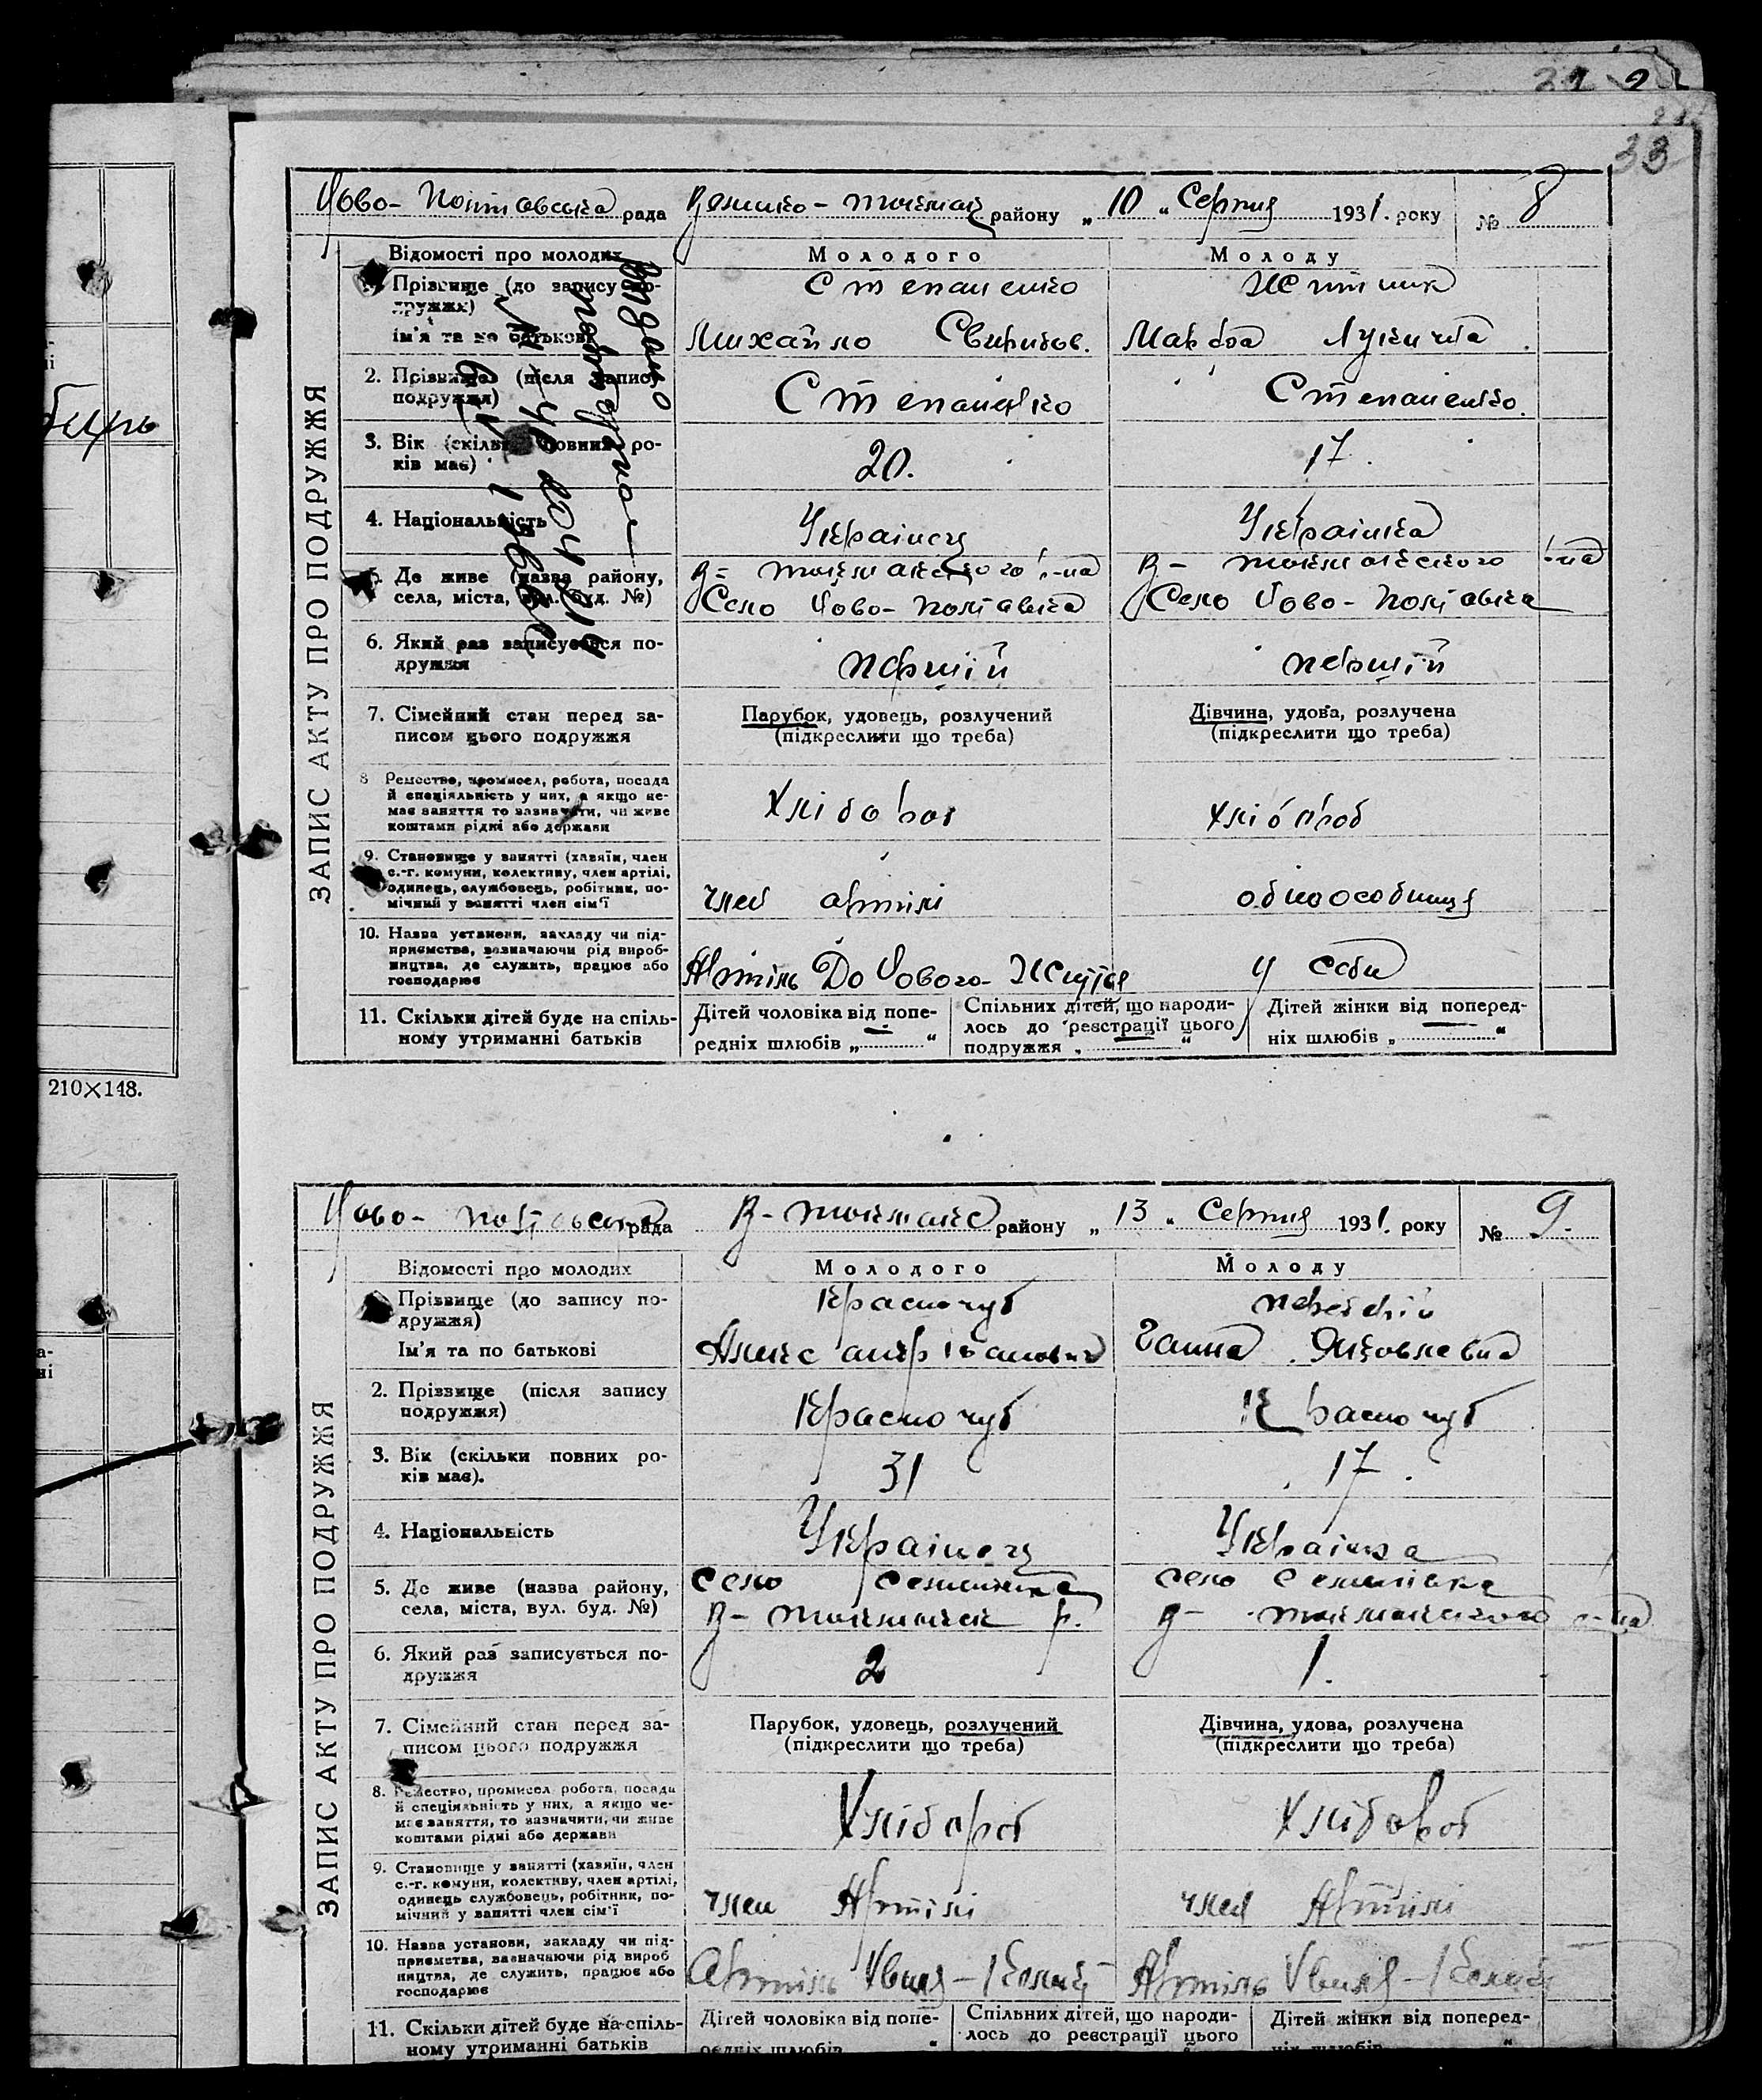 33
Ново-Полтавська рада Велико-Токмак району „10„ Серпня 1931. року № 8
ЗАПИС АКТУ ПРО ПОДРУЖЖЯ
Відомості про молодих Молодого Молоду
Прізвище (до запису по- Степаненко
дружжя)
ім'я та по батькові Михайло Свиридов. Лукична
2. Прізвище (після запису
подружжя) Степаненко Степаненко
3. Вік (скільки повних ро- 20. 17.
ків має)
4. Національність Українец Українка
5. Де живе (назва району, В- Токмакського р-на В- Токмакського р-на
села, міста, вул. буд. №) Село Ново-Полтавка Село Ново-Полтавка
6. Який раз записується по- перший перший
дружжя
7. Сімейний стан перед за- Парубок, удовець, розлучений Дівчина, удова, розлучена
писом цього подружжя (підкреслити що треба) (підкреслити що треба)
8 Ремество, промисел, робота, посада
й спеціяльність у них, а якщо не-
має заняття то зазначити, чи живе Хлібороб Хлібороб
коштами рідні або держави
9. Становище у занятті (хазяїн, член
с.-г. комуни, колективу, член артілі,
одинець, службовець, робітник, по- член артілі одноособниця
мічний у занятті член сім'ї
10. Назва установи, закладу чи під-
приємства, зазначаючи рід вироб-
ництва, де служить, працює або Артіль До Нового-Життя у себе
господарює
11. Скільки дітей буде на спіль- Дітей чоловіка від попе- Спільних дітей, що народи- Дітей жінки від поперед-
ному утриманні батьків редніх шлюбів „ — “ лось до реєстрації цього ніх шлюбів „ — “
подружжя „ — “
Видано
210×148.
Ново-Полтавська рада В-Токмак району „13„ Серпня 1931. року № 9.
ЗАПИС АКТУ ПРО ПОДРУЖЖЯ
Відомості про молодих Молодого Молоду
Прізвище (до запису по- Красночуб
дружжя)
Ім'я та по батькові Ганна Яковлевна
2. Прізвище (після запису
подружжя) Красночуб Красночуб
3. Вік (скільки повних ро- 31 17.
ків має).
4. Національність Українец Українка
5. Де живе (назва району, село Семенівка село Семенівка
села, міста, вул. буд. №) В-Токмакск р. В- Токмакского р-на
6. Який раз записується по- 2 1.
дружжя
7. Сімейний стан перед за- Парубок, удовець, розлучений Дівчина, удова, розлучена
писом цього подружжя (підкреслити що треба) (підкреслити що треба)
8. Ремество, промисел робота, посада
й спеціяльність у них, а якщо не-
має заняття, то зазначити, чи живе Хлібороб Хлібороб
коштами рідні або держави
9. Становище у занятті (хазяїн, член
с.-г. комуни, колективу, член артілі,
одинець службовець, робітник, по- член Артілі член Артілі
мічний у занятті член сім'ї
10. Назва установи, закладу чи під-
приємства, зазначаючи рід вироб
ництва, де служить, працює або Артіль Артіль
господарює
11. Скільки дітей буде на спіль- Дітей чоловіка від попе- Спільних дітей, що народи- Дітей жінки від поперед-
ному утриманні батьків редніх шлюбів лось до реєстрації цього ніх шлюбів